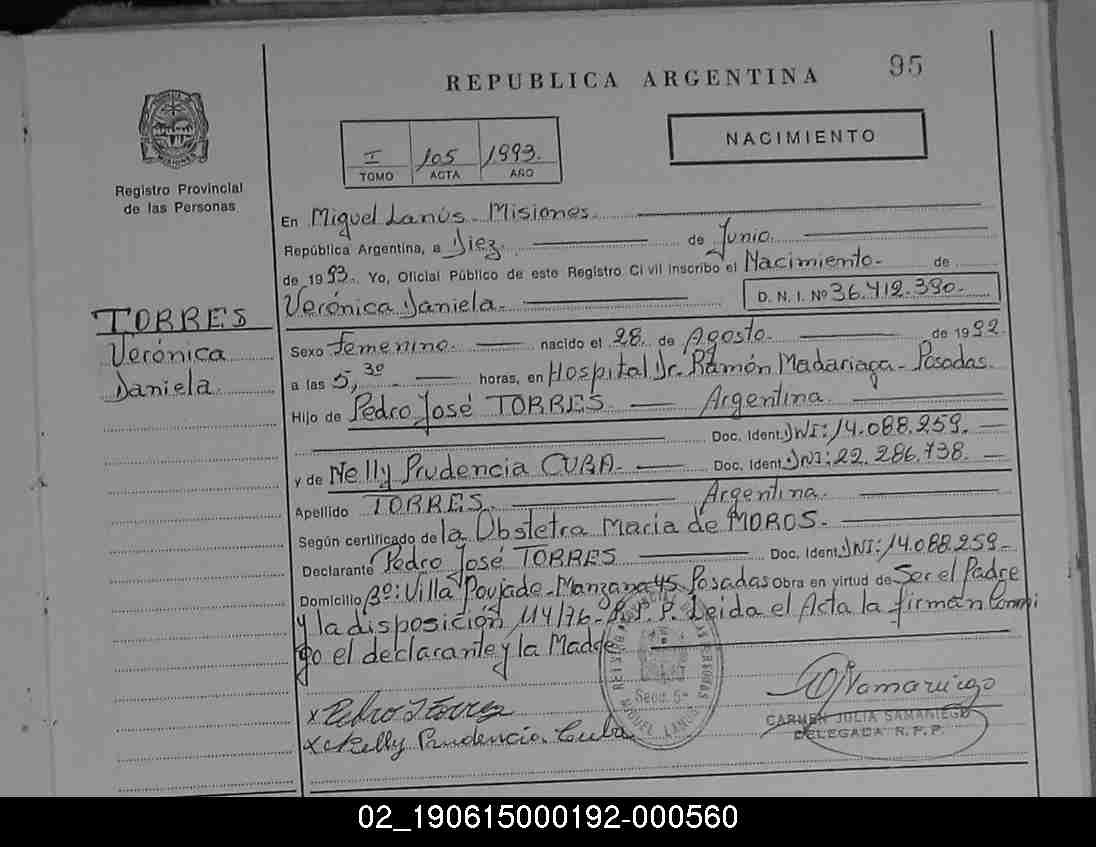 REPUBLICA ARGENTINA 95
I 105 1993.
TOMO ACTA AÑO
NACIMIENTO
Registro Provincial
de las Personas
En Miguel Lanús - Misiones.
República Argentina, a Diez de Junio
de 1993. Yo, Oficial Público de este Registro Civil inscribo el Nacimiento - de
Verónica Daniela. D. N. I. Nº 36.412.390.
TORRES
Verónica
Daniela.
Sexo Femenino. nacido el 28 de Agosto. de 1992
a las 5,30 horas, en Hospital Dr. Ramón Madariaga - Posadas.
Hijo de Pedro José TORRES Argentina.
Doc. Ident. DNI: 14.088.259.
y de Nelly Prudencia CUBA. Doc. Ident. DNI: 22.286.738.
Argentina.
Apellido TORRES.
Según certificado de la Obstetra Maria de MOROS.
Declarante Pedro José TORRES Doc. Ident. DNI: 14.088.259
Domicilio Bº: Villa Poujade - Manzana 45 Posadas obra en virtud de Ser el Padre
y la disposición 114/76 - R.P.P. Leida el Acta la firman Conmi
go el declarante y la Madre
x Pedro J Torrez
x Nelly Prudencia Cuba
CARMEN JULIA SAMANIEGO
DELEGADA R.P.P.
02_190615000192-000560